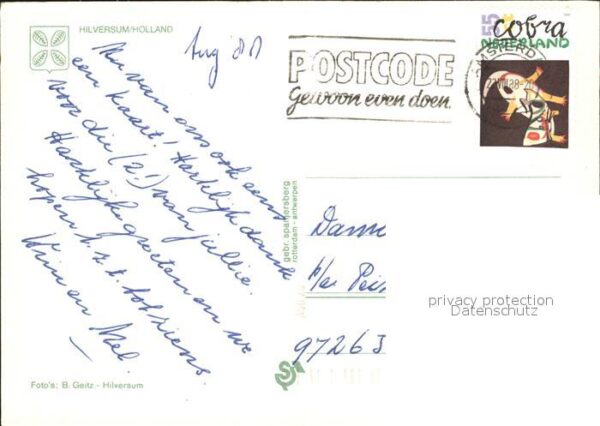 HILVERSUM/HOLLAND
Aug '88
Nu van ons ook eens
een kaart! Hartelijk dank
voor die (2!) van jullie.
Hartelijke groeten en we
hopen t.z.t. tot ziens.
Wim en Mel.
Foto's: B. Geitz - Hilversum
gebr. spanjersberg
rotterdam - antwerpen
POSTCODE
Gewoon even doen.
AMSTERD
55
cobra
NEDERLAND
97263
privacy protection
Datenschutz